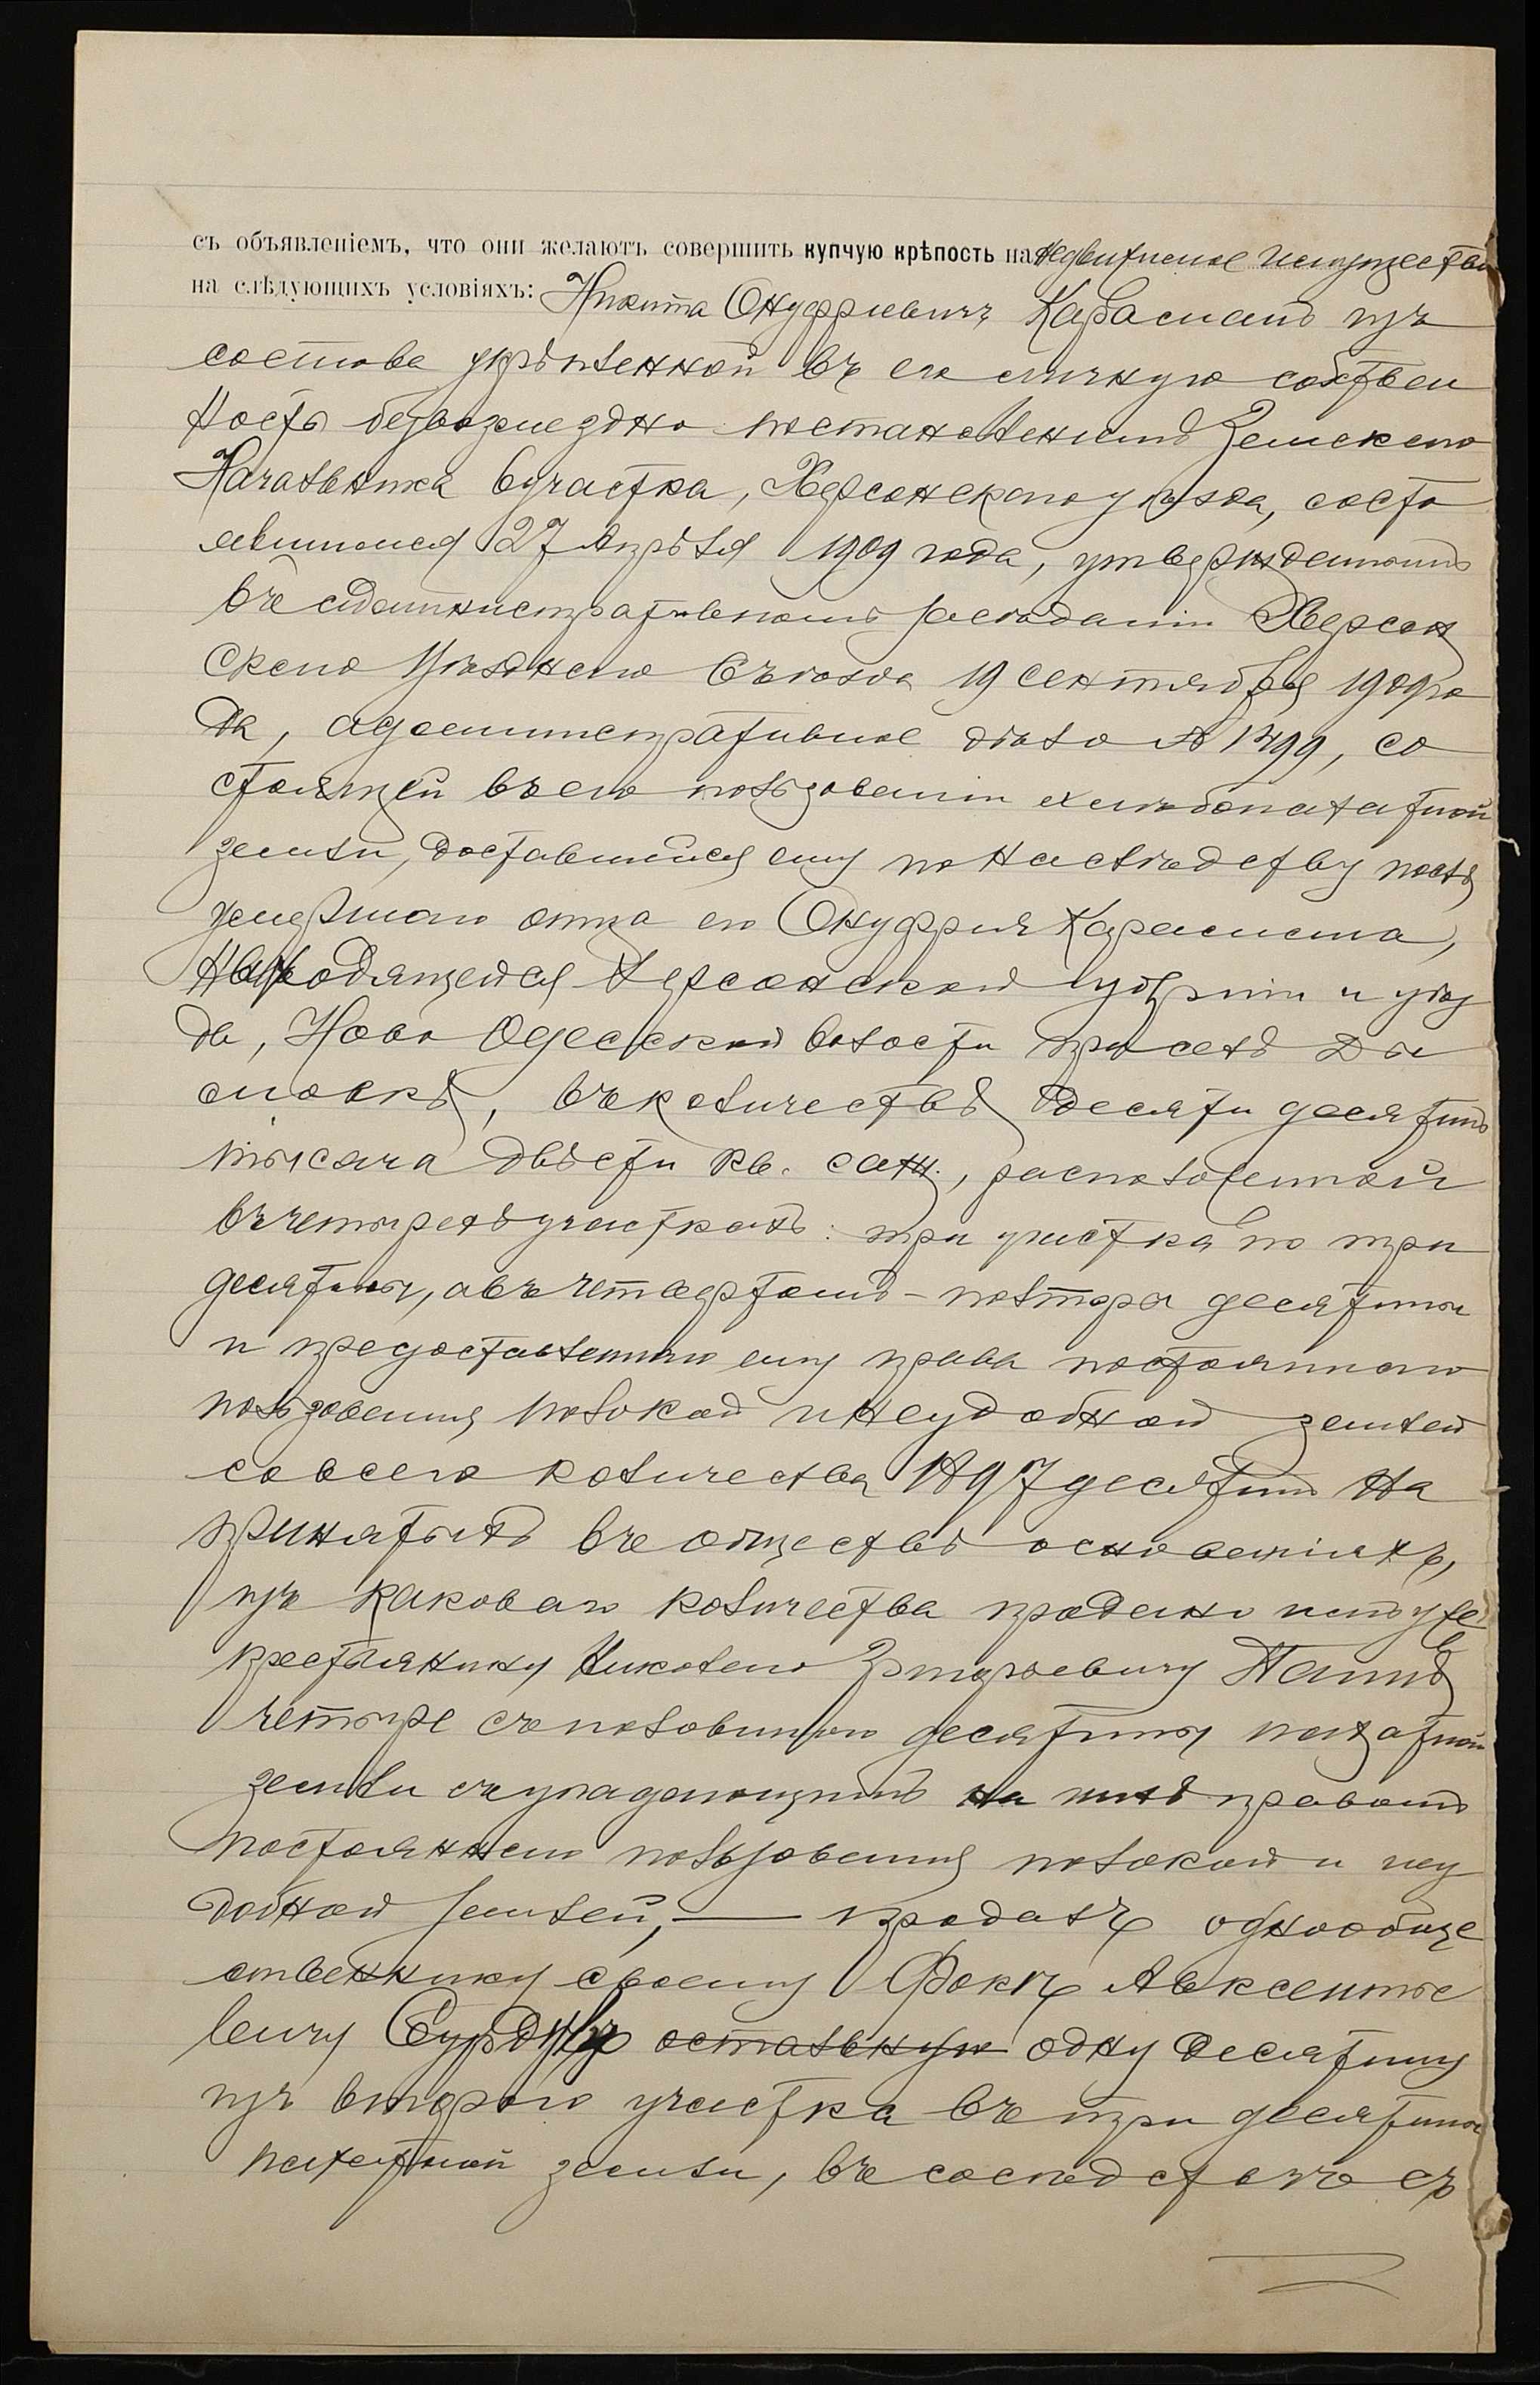 съ объявленіемъ, что они желаютъ совершить купчую крѣпость на недвижимое имущество
на слѣдующихъ условіяхъ: Никита Онуфріевичъ Карасманъ изъ
состава укрѣпленной въ его личную собствен
ность безвозмездно постановленіемъ Земскаго
Начальника 6 участка, Херсонскаго уѣзда, состо
явшимся 27 Апрѣля 1909 года, утвержденнымъ
въ административномъ засѣданіи Херсон
скаго Уѣзднаго Съѣзда 19 Сентября 1909 го
да, административное дѣло № 1499, со
стоящей въ его пользованіи хлѣбопахатной
земли, доставшейся ему по наслѣдству послѣ
умершаго отца его Онуфрія Карасмана,
находящейся Херсонской губерніи и уѣз
да, Ново Одесской волости при селѣ Ды
мовкѣ, въ количествѣ десяти десятинъ
тысяча двѣсти кв. саж., расположенной
въ четырехъ участкахъ: три участка по три
десятины, а въ четвертомъ - полтора десятины
и предоставленнаго ему права постояннаго
пользованія толокой и неудобной землей
со всего количества 1897 десятинъ на
принятыхъ въ обществѣ основаніяхъ,
изъ каковаго количества продано имъ уже
крестьянину Николаю Григорьевичу
четыре съ половиною десятины пахатной
земли съ упадающимъ на нихъ правомъ
постояннаго пользованія толокой и неу
добной землей, — продалъ однообще
ственнику своему Фокѣ Авксентіе
вичу остальную одну десятину
изъ второго участка въ три десятины
пахатной земли, въ сосѣдствѣ съ